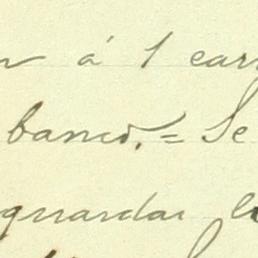 á 1 carr
banco. = Se
guardar